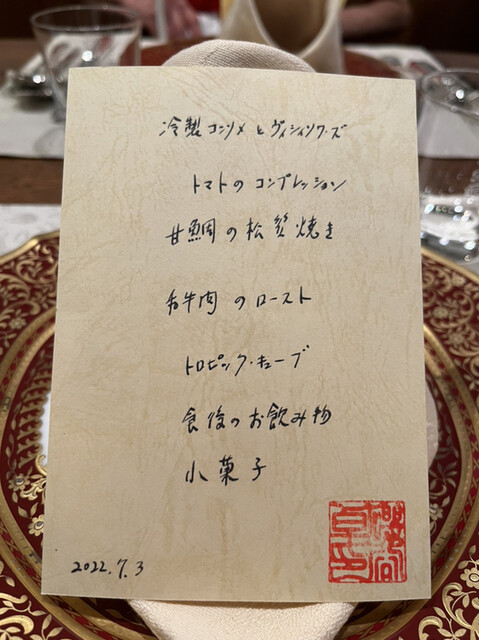 冷製コンソメとヴィシソワーズ
トマトのコンプレッション
甘鯛の松笠焼き
和牛肉のロースト
トロピック・キューブ
食後のお飲み物
小菓子
2022.7.3